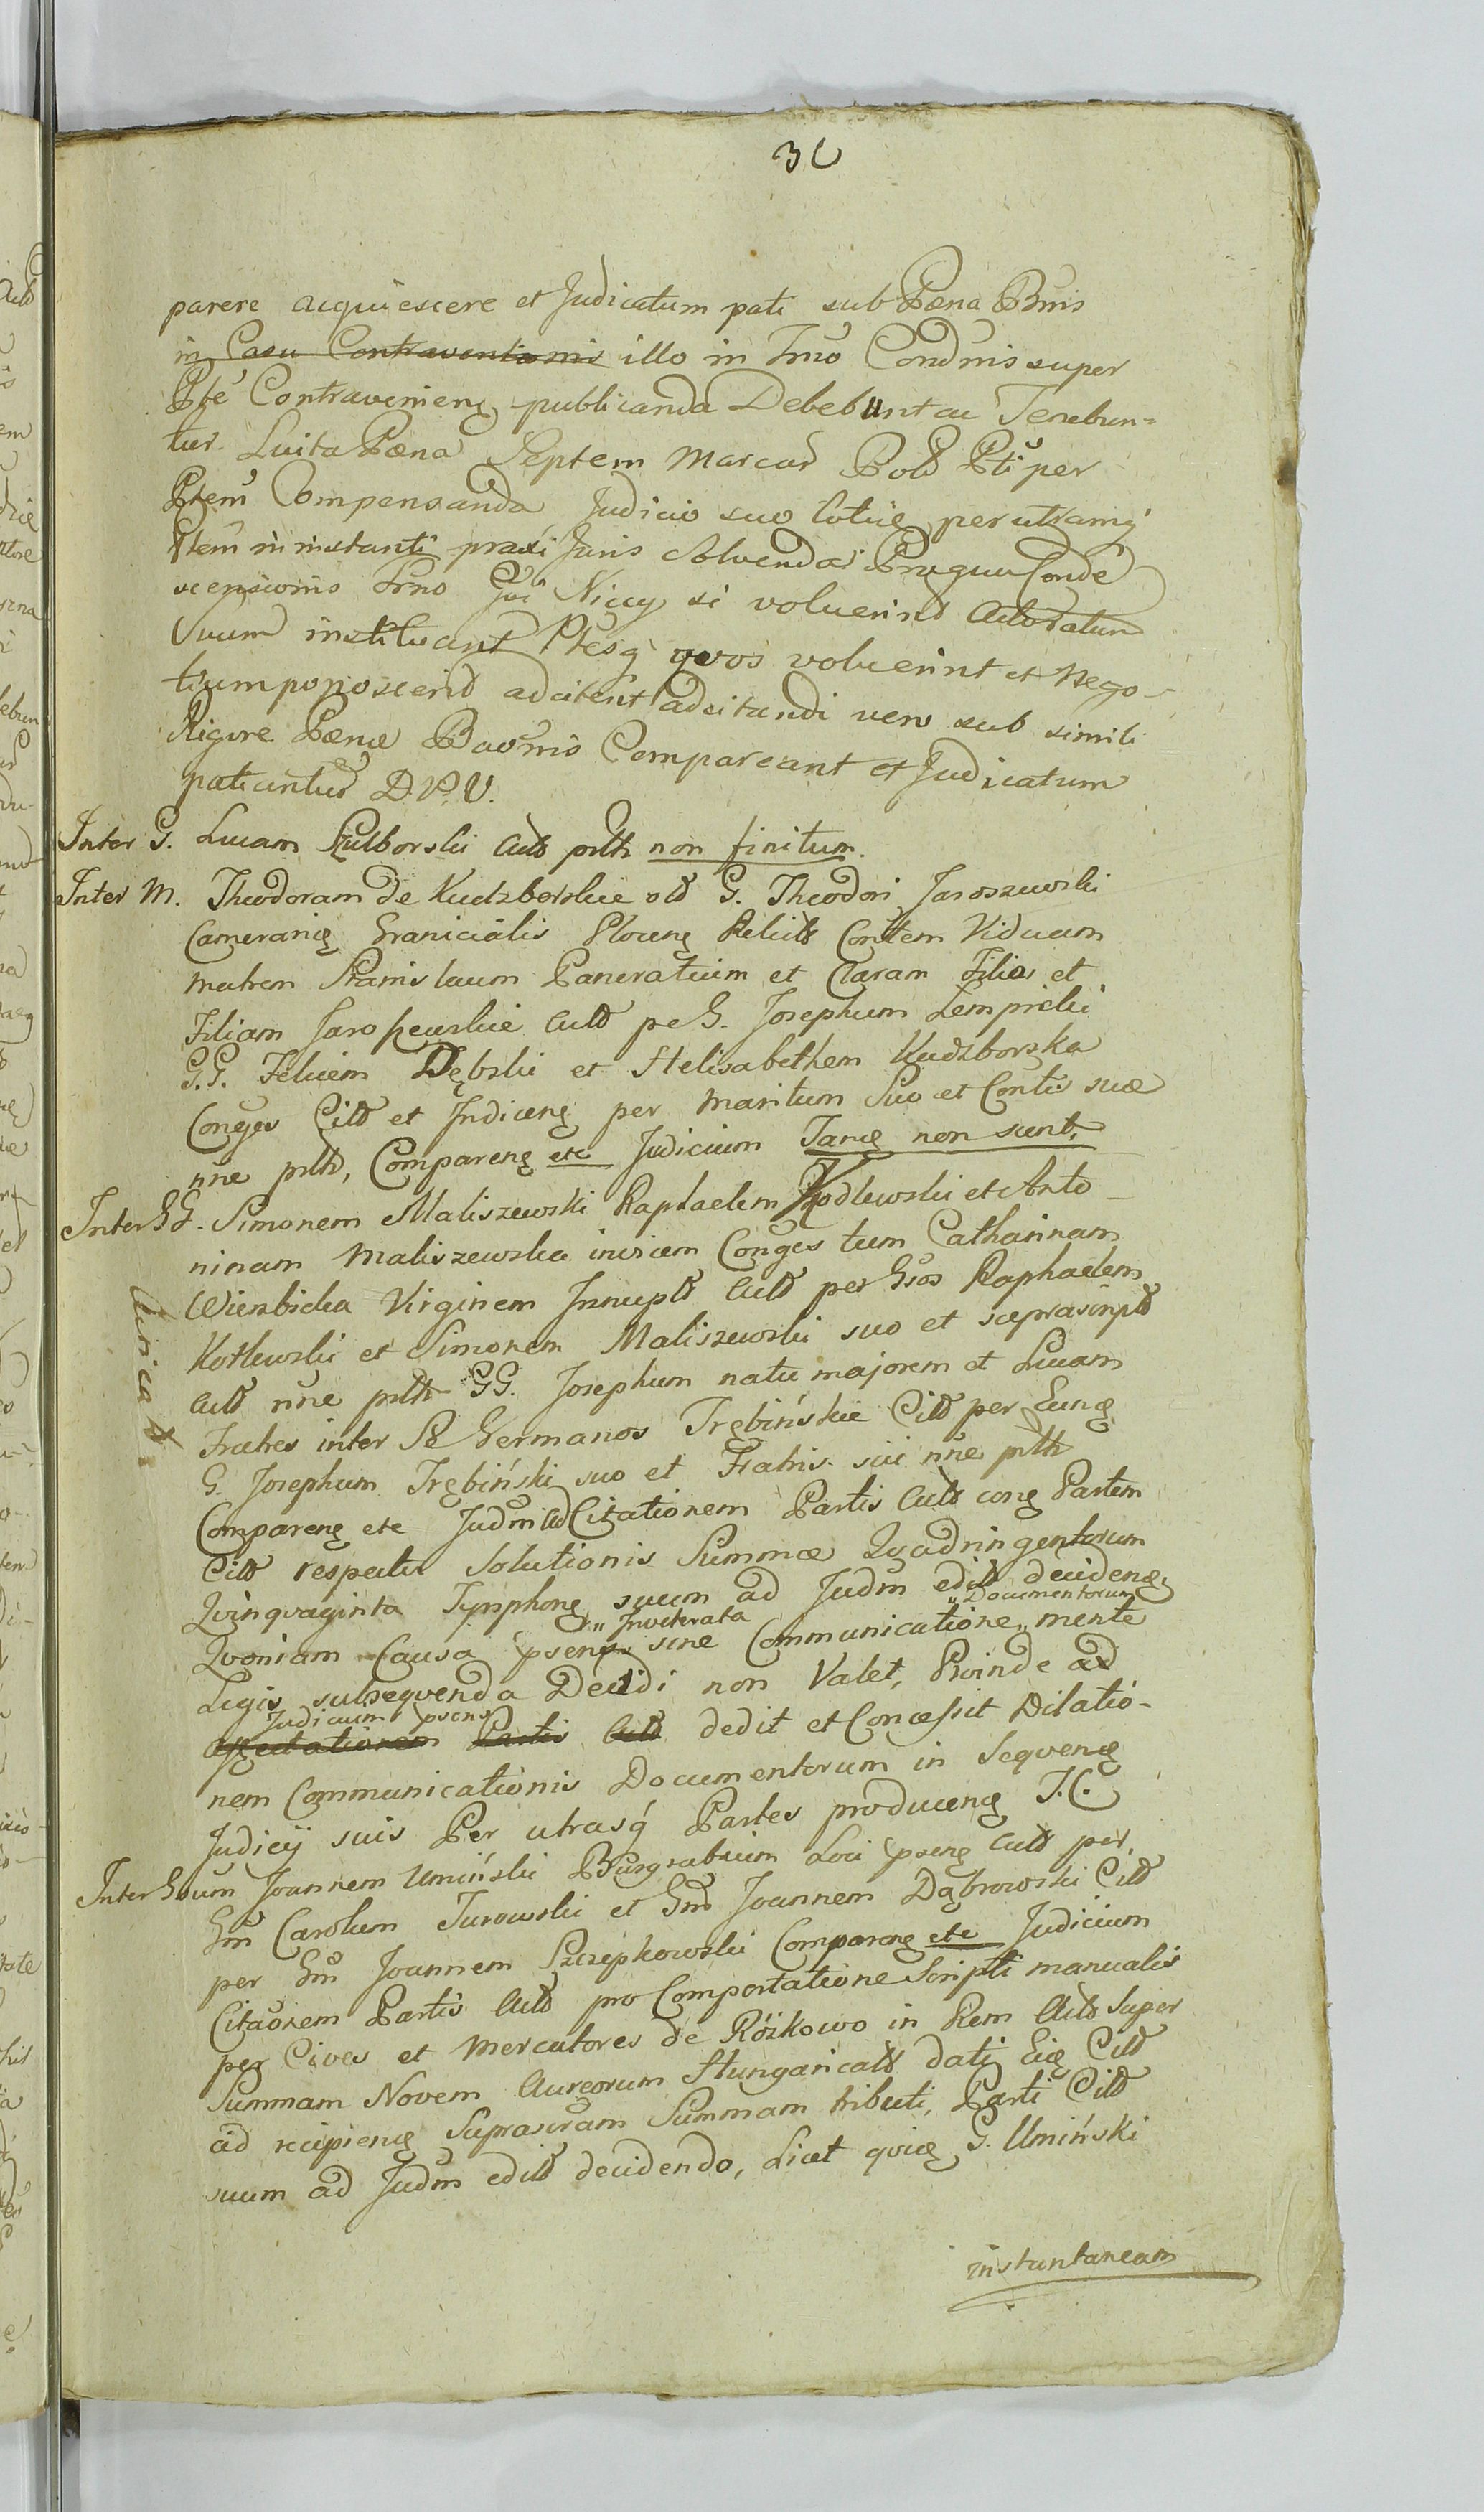 31
parere acquiescere et Judicatum pati sub Pæna Bnis
in Casu Contraventionis illo in Trno Condnis super
Pte Contravenieng publicanda Debebunt ac Tenebun=
tur Luita Pæna Septem Marcar Pold Pti per
Ptem Compensanda Judicio suo totie per utramq
Ptem in instanti praxi Juris solvenda Pro qua Conde
scensionis Trno si voluerint
suum instituant Ptesq quos voluerint et Nego-
tium poposcerit adcitent adcitandi vero sub simili
Rigore Pænæ Baonis Compareant et Judicatum
patiantur D.P.V.
Inter G. Lucam Kulborski Actd plth non finitum.
Inter M. Theodoram de Kudzborskie old G. Theodori Jaroszewski
Camerarie Granicialis Plocens Relictd Contem Viduam
Matrem Stanislaum Pancratium et Claram Filios et
Filiam Jaroszewskie Actd pe G. Josephum Lempicki
G.G. Felicem Dębski et Helisabethem Kudzborska
Conges Citd et Indiceng per Maritum Suo et Contis suæ
nne plth, Compareng etc Judicium Tanę non sunt.
Inter GG. Simonem Maliszewski Raphaelem Kodlewski et Anto-
ninam Maliszewska invicem Conges tum Catharinam
Wierzbicka Virginem Innuptd Actd per Gsos Raphaelem
Kotlewski et Simonem Maliszewski suo et suprascriptd
Actd nne plth GG. Josephum natu majorem et Lucam
Fratres inter Se Germanos Trębińskie Citd per Eung
G. Josephum Trębiński suo et Fratris sui nne plth
Compareng etc Judm ad Citationem Partis Actd cong Partem
Citd respectu Solutionis Summæ Quadringentorum
Quinquaginta Tynphong suum ad Judm editd decideng
Quoniam Causa pseng „Inveterata sine Communicatione „Documentorum mente
Legis subsequenda Decidi non Valet, Proinde ad
affectationem Partis Actd Judicium psens dedit et Concessit Dilatio-
nem Communicationis Documentorum in Sequeng
Judicij suis Per utrasq Partes produceng T.C.
Inter Gsum Joannem Umiński Burgrabium Loci pseng Actd per
Gm Carolum Turowski et Gm Joannem Dąbrowski Citd
per Gm Joannem Szczepkowski Compareng etc Judicium
Citaonem Partis Actd pro Comportatione Scripti manualis
per Cives et Mercatores de Różkowo in Rem Actd Super
Summam Novem Aureorum Hungaricald dati Eig Citd
ad recipieng Suprascram Summam tributi, Parti Citd
suum ad Judm editd decidendo, Licet quie G. Umiński
instantaneam